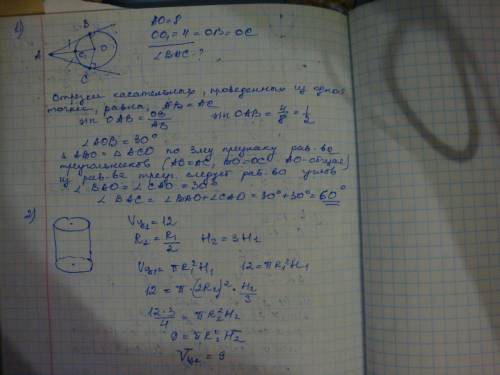 1)
B
A
1
O
C₁
C
AO=8
OC₁=4=OB=OC
∠BAC-?
Отрезки касательных, проведенных из одной
точки, равны, AB=AC
sin OAB = OB/AB sin OAB = 4/8 = 1/2
∠AOB=30°
ΔABO=ΔACO по 3му признаку рав-ва
треугольников (AB=AC, BO=OC, AO-общая)
из рав-ва треуг. следует рав-во углов
∠BAO=∠CAO=30°
∠BAC=∠BAO+∠CAO=30°+30°=60°
2)
V ц₁=12
R₂=R₁/2 H₂=3H₁
V ц₁=πR₁²H₁ 12=πR₁²H₁
12=π·(2R₂)²·H₂/3
12·3/4=πR₂²H₂
9=πR₂²H₂
V ц₂=9